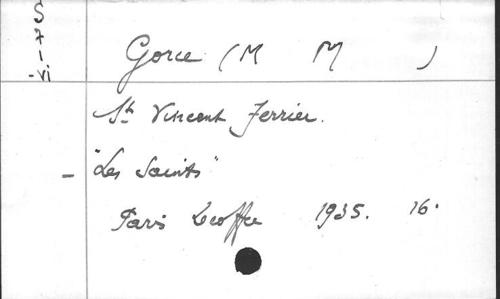 S-7-vi.
Gorce (M M )
St Vincent Ferrier.
- "Les Saints"
Paris Lecoffre 1935. 16°